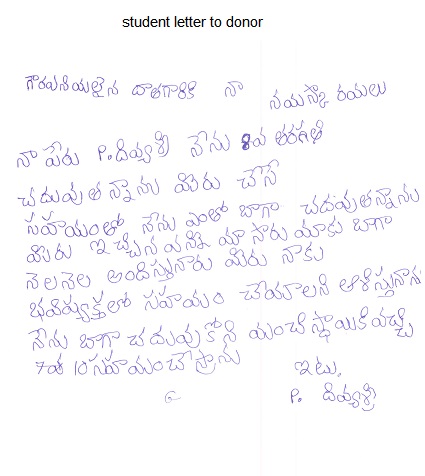 student letter to donor
గౌరవనీయులైన దాతగారికి నా
నమస్కారములు
నా పేరు P.దివ్యశ్రీ నేను 8వ తరగతి
చదువుతున్నాను మీరు చేసే
సహాయంతో నేను ఎంతో బాగా చదువుతున్నాను
మీరు ఇచ్చినవన్నీ మా సారు మాకు బాగా
నెలనెల అందిస్తున్నారు మీరు నాకు
భవిష్యత్తులో సహాయం చేయాలని ఆశిస్తున్నాను
నేను బాగా చదువుకోని మంచి స్థాయికి వచ్చి
ఇట్లు,
P. దివ్యశ్రీ